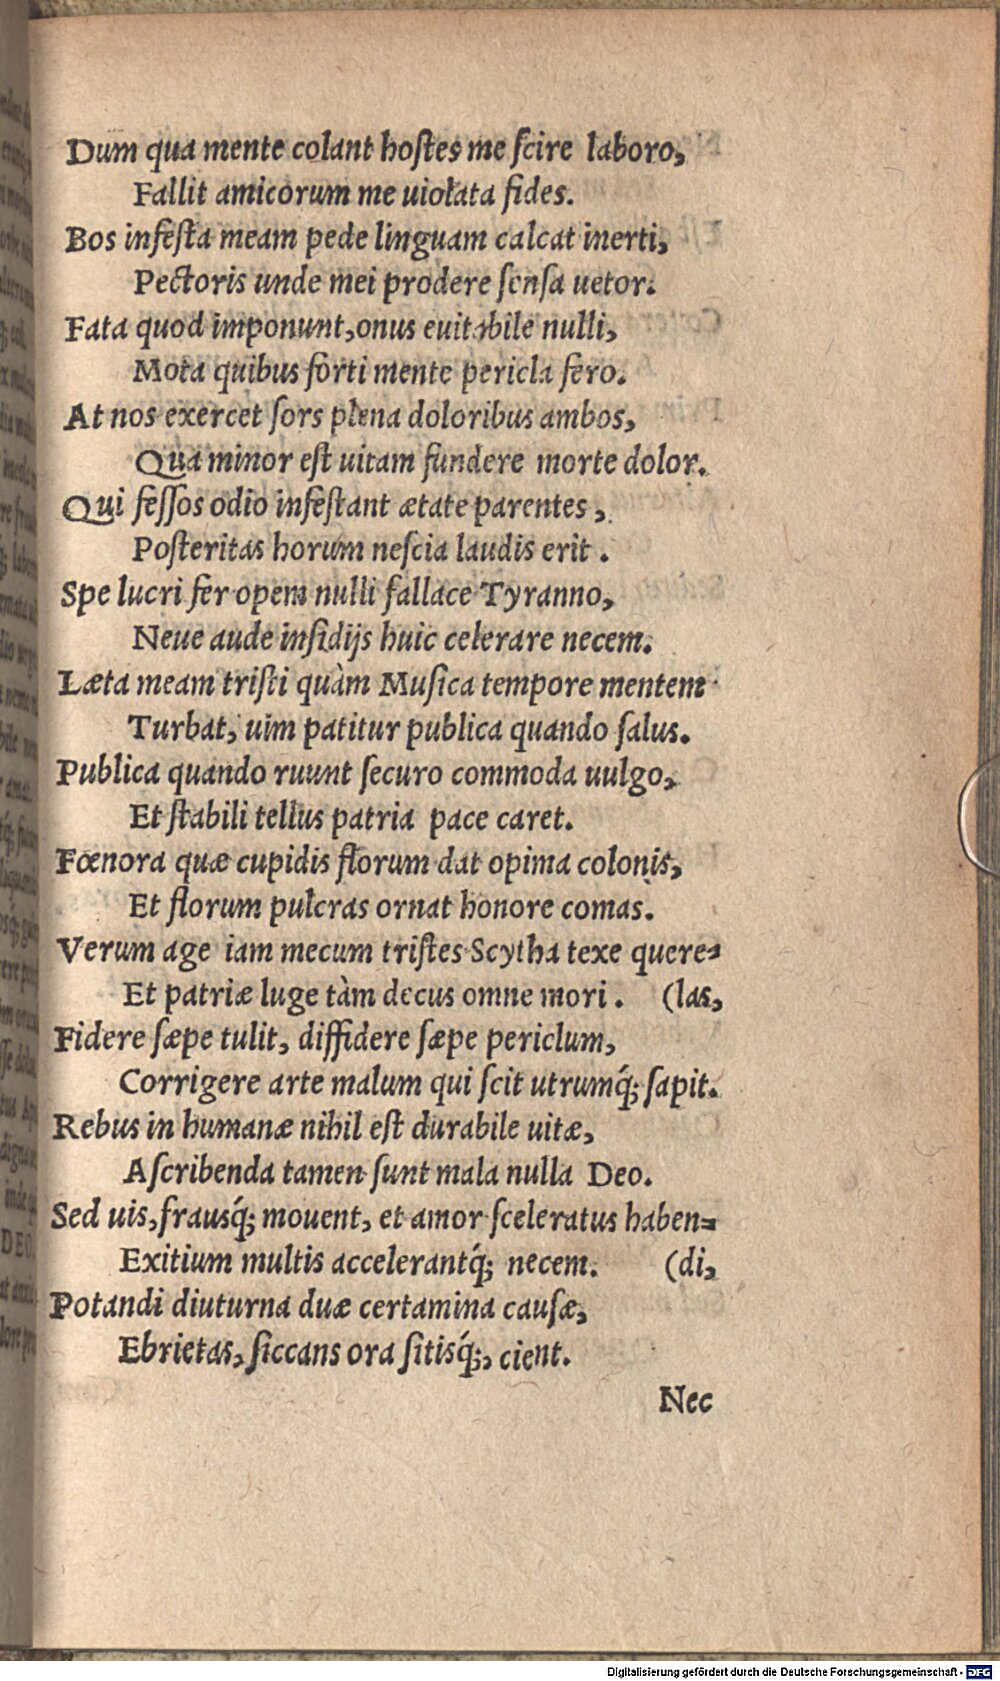 Dum qua mente colant hostes me scire laboro,
Fallit amicorum me uiolata fides.
Bos infesta meam pede linguam calcat inerti,
Pectoris unde mei prodere sensa uetor.
Fata quod imponunt, onus euitabile nulli,
Mota quibus forti mente pericla fero.
At nos exercet sors plena doloribus ambos,
Qua minor est uitam fundere morte dolor.
Qui fessos odio infestant ætate parentes,
Posteritas horum nescia laudis erit.
Spe lucri fer opem nulli fallace Tyranno,
Neue aude insidijs huic celerare necem.
Læta meam tristi quàm Musica tempore mentem
Turbat, uim patitur publica quando salus.
Publica quando ruunt securo commoda uulgo,
Et stabili tellus patria pace caret.
Fœnora quæ cupidis florum dat opima colonis,
Et florum pulcras ornat honore comas.
Verum age iam mecum tristes Scytha texe quere-
Et patriæ luge tàm decus omne mori. (las,
Fidere sæpe tulit, diffidere sæpe periclum,
Corrigere arte malum qui scit utrumq́; sapit.
Rebus in humanæ nihil est durabile uitæ,
Ascribenda tamen sunt mala nulla Deo.
Sed uis, frausq́; mouent, et amor sceleratus haben=
Exitium multis accelerantq́; necem. (di,
Potandi diuturna duæ certamina causæ,
Ebrietas, siccans ora sitisq́;, cient.
Nec
Digitalisierung gefördert durch die Deutsche Forschungsgemeinschaft - DFG